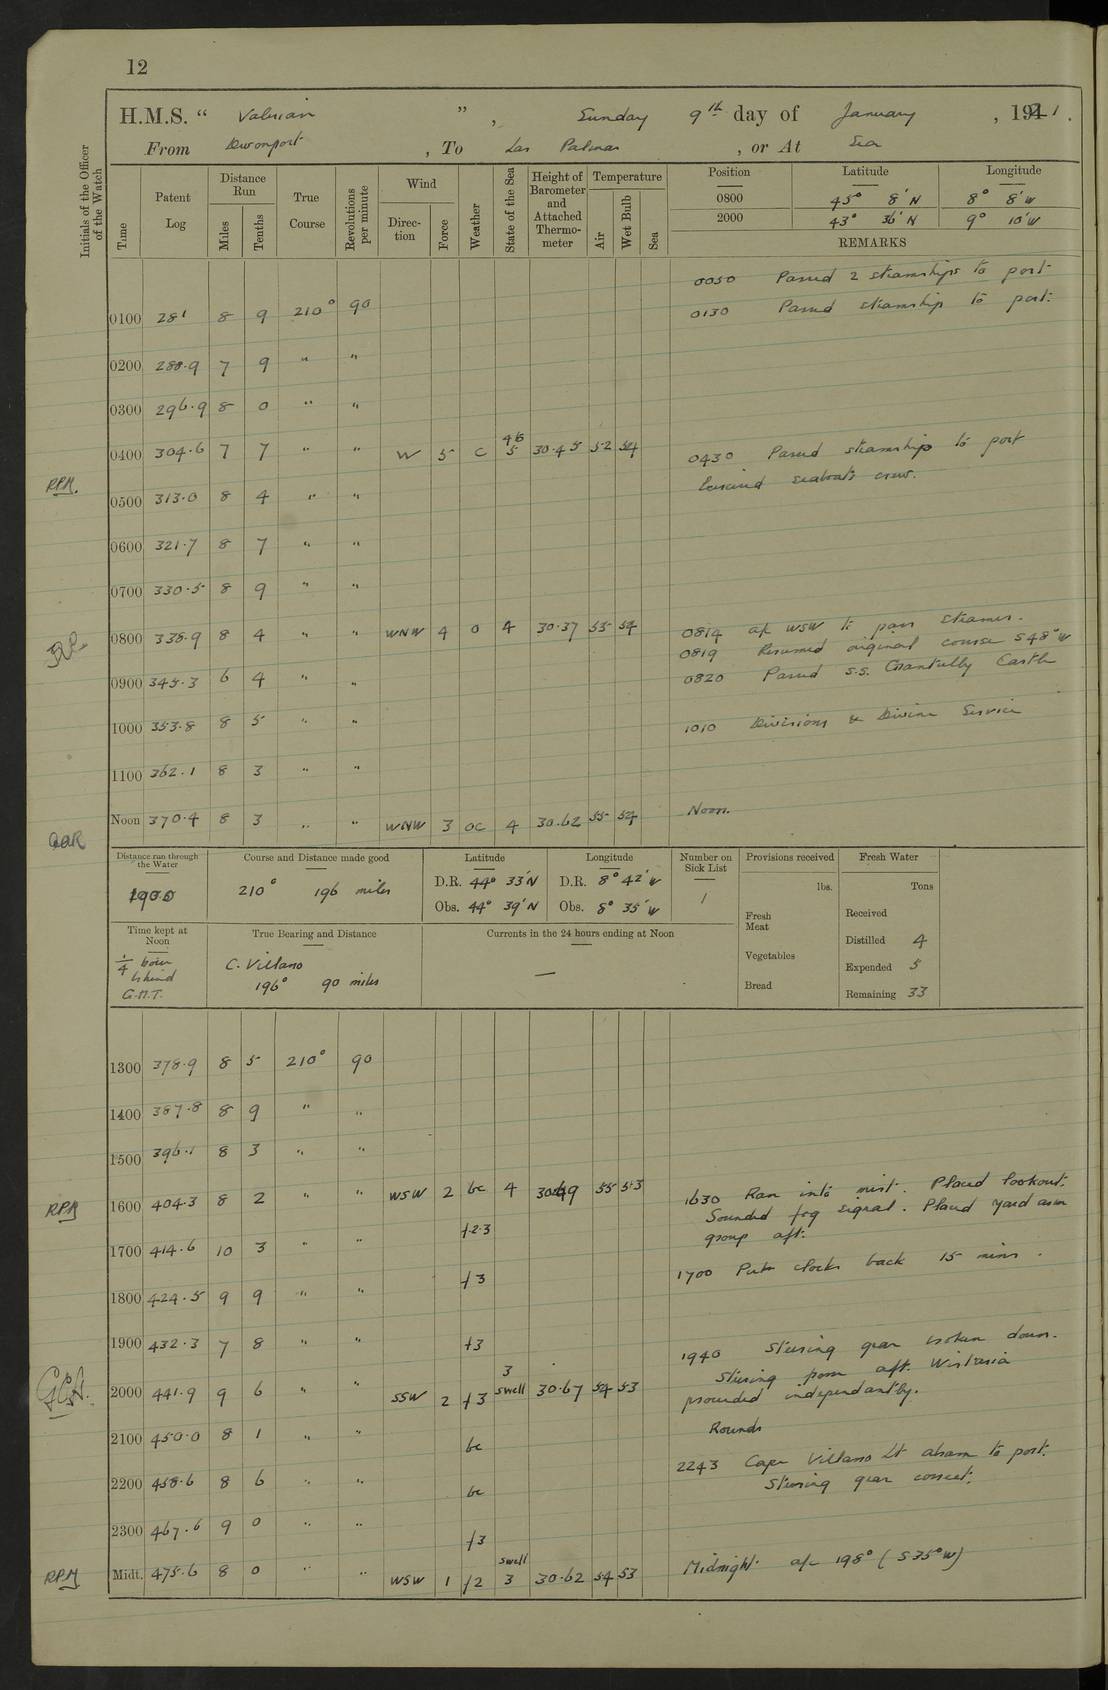 12
H.M.S. “ Valerian ” , Sunday 9th day of January , 1921 .
From Devonport , To Las Palmas , or At Sea
Initials of the Officer of the Watch
Time
Patent Log
Distance Run
Miles
Tenths
True Course
Revolutions per minute
Wind
Direc-tion
Force
Weather
State of the Sea
Height of Barometer and Attached Thermo-meter
Temperature
Air
Wet Bulb
Sea
Position Latitude Longitude
0800 45° 8' N 8° 8' W
2000 43° 36' N 9° 10' W
REMARKS
0050 Passed 2 steamships to port
0100 281 8 9 210° 90
0130 Passed steamship to port.
0200 288.9 7 9 " "
0300 296.9 8 0 " "
0400 304.6 7 7 " " W 5 c 46 5 30.45 52 54
0430 Passed steamship to port
Exercised seaboats crew.
RPM.
0500 313.0 8 4 " "
0600 321.7 8 7 " "
0700 330.5 8 9 " "
0800 338.9 8 4 " " WNW 4 o 4 30.37 55 54
0814 a/c WSW to pass steamer.
0819 Resumed original course S48°W
0820 Passed S.S. Grantully Castle
0900 345.3 6 4 " "
1000 353.8 8 5 " "
1010 Divisions & Divine Service
1100 362.1 8 3 " "
Noon 370.4 8 3 " " WNW 3 oc 4 30.62 55 54
Noon.
Distance run through the Water
Course and Distance made good
210° 196 miles
Latitude
D.R. 44° 33' N
Obs. 44° 39' N
Longitude
D.R. 8° 42' W
Obs. 8° 35' W
Number on Sick List
1
Provisions received
lbs.
Fresh Meat
Vegetables
Bread
Fresh Water
Tons
Received
Distilled 4
Expended 5
Remaining 33
Time kept at Noon
1/4 hour behind G.M.T.
True Bearing and Distance
C. Villano
196° 90 miles
Currents in the 24 hours ending at Noon
—
1300 378.9 8 5 210° 90
1400 387.8 8 9 " "
1500 396.1 8 3 " "
1600 404.3 8 2 " " WSW 2 bc 4 30.49 55 53
RPM
f.2.3
1630 Ran into mist. Placed lookout.
Sounded fog signal. Placed yard arm
group aft.
1700 414.6 10 3 " "
1700 Put clocks back 15 mins.
f3
1800 424.5 9 9 " "
1900 432.3 7 8 " " f3
1940 Steering gear broken down.
Steering from aft. Wistaria
proceeded independantly.
2000 441.9 9 6 " " SSW 2 f3 3 swell 30.67 54 53
Rounds
2100 450.0 8 1 " " bc
2200 458.6 8 6 " " bc
2243 Cape Villano Lt abeam to port.
Steering gear correct.
2300 467.6 9 0 " " f3
Midt. 475.6 8 0 " " WSW 1 f2 swell 3 30.62 54 53
Midnight a/c 198° (S35°W)
RPM